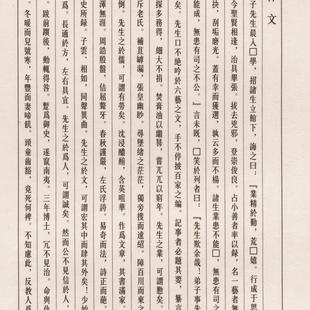 文
子先生晨入□學，招諸生立館下，誨之曰：『業精於勤，荒□嬉。行成于思
今聖賢相逢，治具畢張，拔去兇邪，登崇俊良。占小善者率以錄，名一藝者無
抉，刮垢磨光。蓋有幸而獲選，孰云多而不揚。諸生業患不能□，無患有司
能成，無患有司之不公。』言未既，□笑於列者曰：『先生欺余哉！弟子事先
矣。先生口不絶吟於六藝之文，手不停披百家之編。記事者必提其要，纂言
探多務得，細大不捐。焚膏油以繼晷，嘗兀兀以窮年。先生之業，可謂勤矣
斥老氏。補苴罅漏，張皇幽眇。尋墜緒之茫茫，獨旁搜而遠紹。障百川而東之
倒。先生之於儒，可謂有勞矣。沈浸醲郁，含英咀華。作爲文章，其書滿家。
渾無涯。周誥殷盤，佶屈聱牙。春秋謹嚴，左氏浮誇。易奇而法，詩正而葩。
史所錄。子雲、相如，同聲異曲。先生之於文，可謂宏其中而肆其外矣！少始
爲。長通於方，左右具宜。先生之於爲人，可謂誠矣。然而公不見信於人，
。跋前躓後，動輒得咎。暫爲御史，遂竄南夷。三年博士，冗不見治。命與仇
。冬暖而兒號寒，年豐而妻啼飢。頭童齒豁，竟死何裨。不知慮此，反教人爲